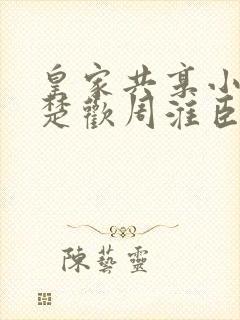 皇家共享小
楚歡周淮臣
陳藝靈